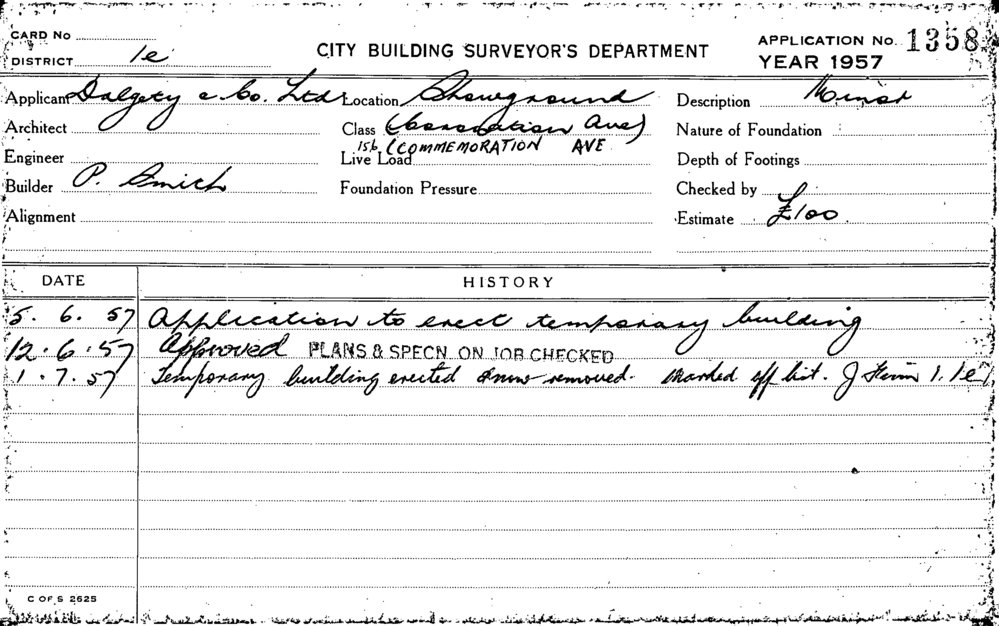 CARD No
DISTRICT 1e
CITY BUILDING SURVEYOR'S DEPARTMENT
APPLICATION No. 1358
YEAR 1957
Applicant Dalgety & Co. Ltd Location Showground Description Minor
Architect Class (Coronation Ave) Nature of Foundation
156 (COMMEMORATION AVE
Engineer Live Load Depth of Footings
Builder P. Smith Foundation Pressure Checked by
Alignment Estimate £100
DATE HISTORY
5. 6. 57 Application to erect temporary building
12. 6. 57 Approved PLANS & SPECN. ON JOB CHECKED
1. 7. 57 Temporary building erected & now removed. Marked off list. J 1. 1e
C OF S 2625